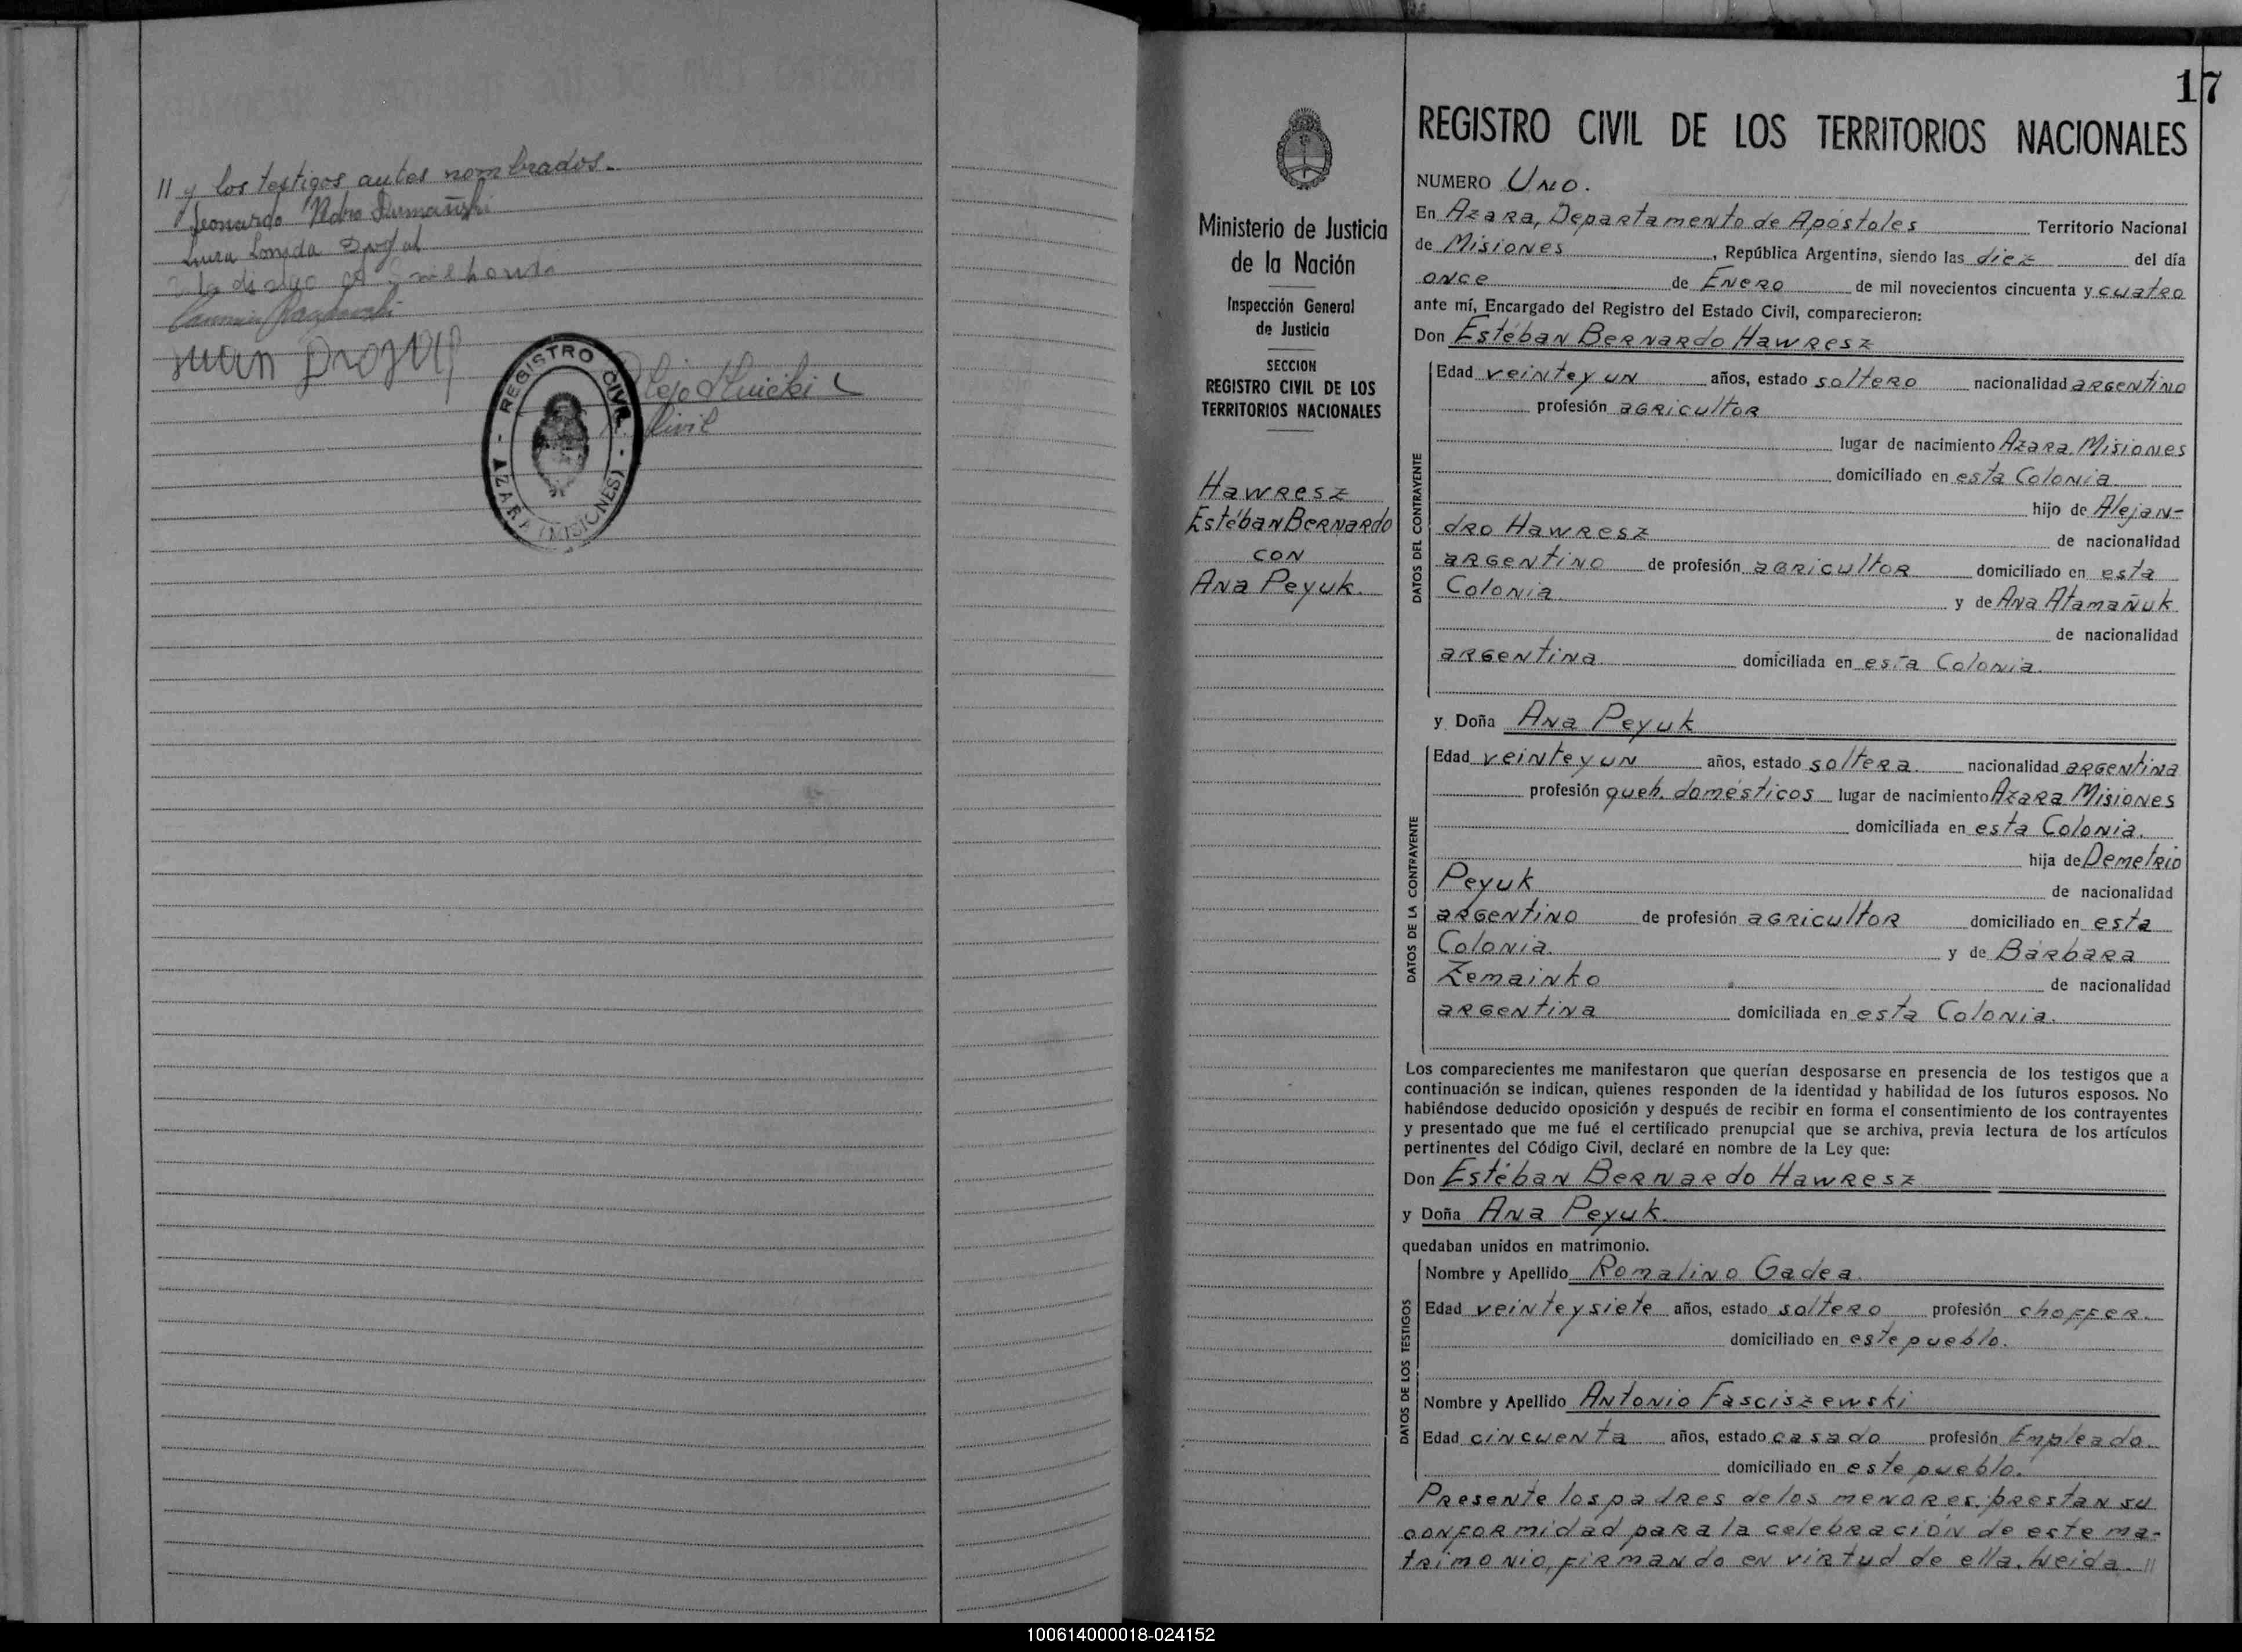 // y los testigos antes nombrados.
Leonardo Pedro
Laura
Juan
REGISTRO CIVIL
AZARA (MISIONES)
Civil
17
Ministerio de Justicia
de la Nación
Inspección General
de Justicia
SECCION
REGISTRO CIVIL DE LOS
TERRITORIOS NACIONALES
Hawresz
Estéban Bernardo
con
Ana Peyuk.
REGISTRO CIVIL DE LOS TERRITORIOS NACIONALES
NUMERO Uno.
En Azara, Departamento de Apóstoles Territorio Nacional
de Misiones, República Argentina, siendo las diez del día
once de Enero de mil novecientos cincuenta y cuatro
ante mí, Encargado del Registro del Estado Civil, comparecieron:
Don Estéban Bernardo Hawresz
DATOS DEL CONTRAYENTE
Edad veinteyun años, estado soltero nacionalidad argentino
profesión agricultor
lugar de nacimiento Azara Misiones
domiciliado en esta Colonia.
hijo de Alejan-
dro Hawresz de nacionalidad
argentino de profesión agricultor domiciliado en esta
Colonia y de Ana Atamañuk
de nacionalidad
argentina domiciliada en esta Colonia.
y Doña Ana Peyuk
DATOS DE LA CONTRAYENTE
Edad veinteyun años, estado soltera. nacionalidad argentina
profesión queh. domésticos lugar de nacimiento Azara Misiones
domiciliada en esta Colonia.
hija de Demetrio
Peyuk de nacionalidad
argentino de profesión agricultor domiciliado en esta
Colonia. y de Bárbara
Zemainko de nacionalidad
argentina domiciliada en esta Colonia.
Los comparecientes me manifestaron que querían desposarse en presencia de los testigos que a
continuación se indican, quienes responden de la identidad y habilidad de los futuros esposos. No
habiéndose deducido oposición y después de recibir en forma el consentimiento de los contrayentes
y presentado que me fué el certificado prenupcial que se archiva, previa lectura de los artículos
pertinentes del Código Civil, declaré en nombre de la Ley que:
Don Estéban Bernardo Hawresz
y Doña Ana Peyuk.
quedaban unidos en matrimonio.
DATOS DE LOS TESTIGOS
Nombre y Apellido Romalino Gadea.
Edad veinteysiete años, estado soltero profesión choffer.
domiciliado en este pueblo.
Nombre y Apellido Antonio Fasciszewski
Edad cincuenta años, estado casado profesión Empleado.
domiciliado en este pueblo.
Presente los padres de los menores prestan su
conformidad para la celebración de este ma-
trimonio, firmando en virtud de ella. Leida. //
100614000018-024152